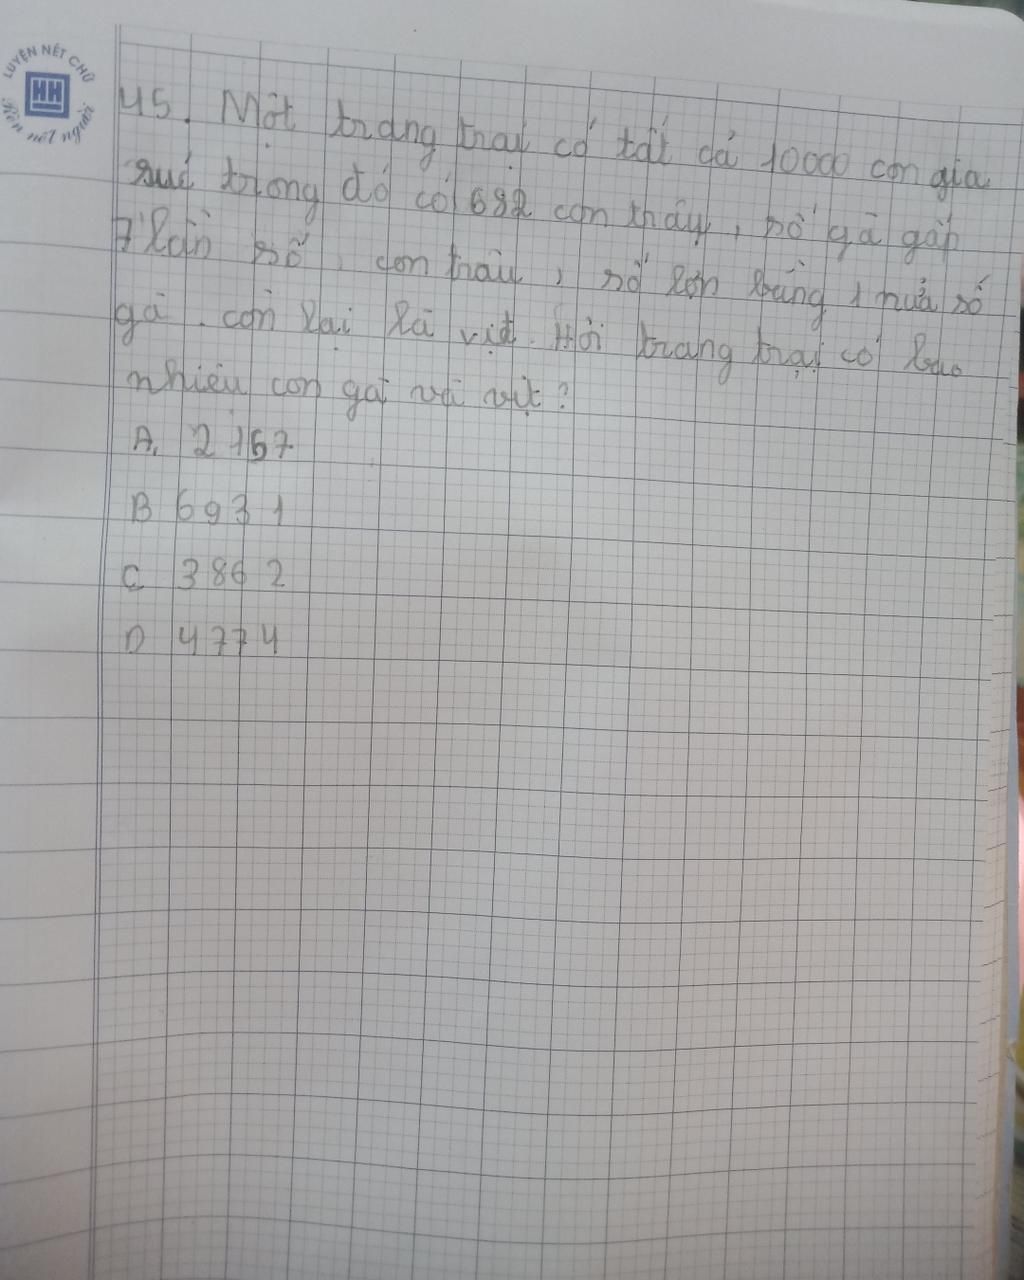 LUYỆN NÉT CHỮ
HH
Rèn nết người
45. Một trang trại có tất cả 10000 con gia
súc trong đó có 682 con trâu, số gà gấp
7 lần số con trâu, số lợn bằng 1 nửa số
gà. còn lại là vịt. Hỏi trang trại có bao
nhiêu con gà và vịt?
A. 2167
B 6931
C 3862
D 4774